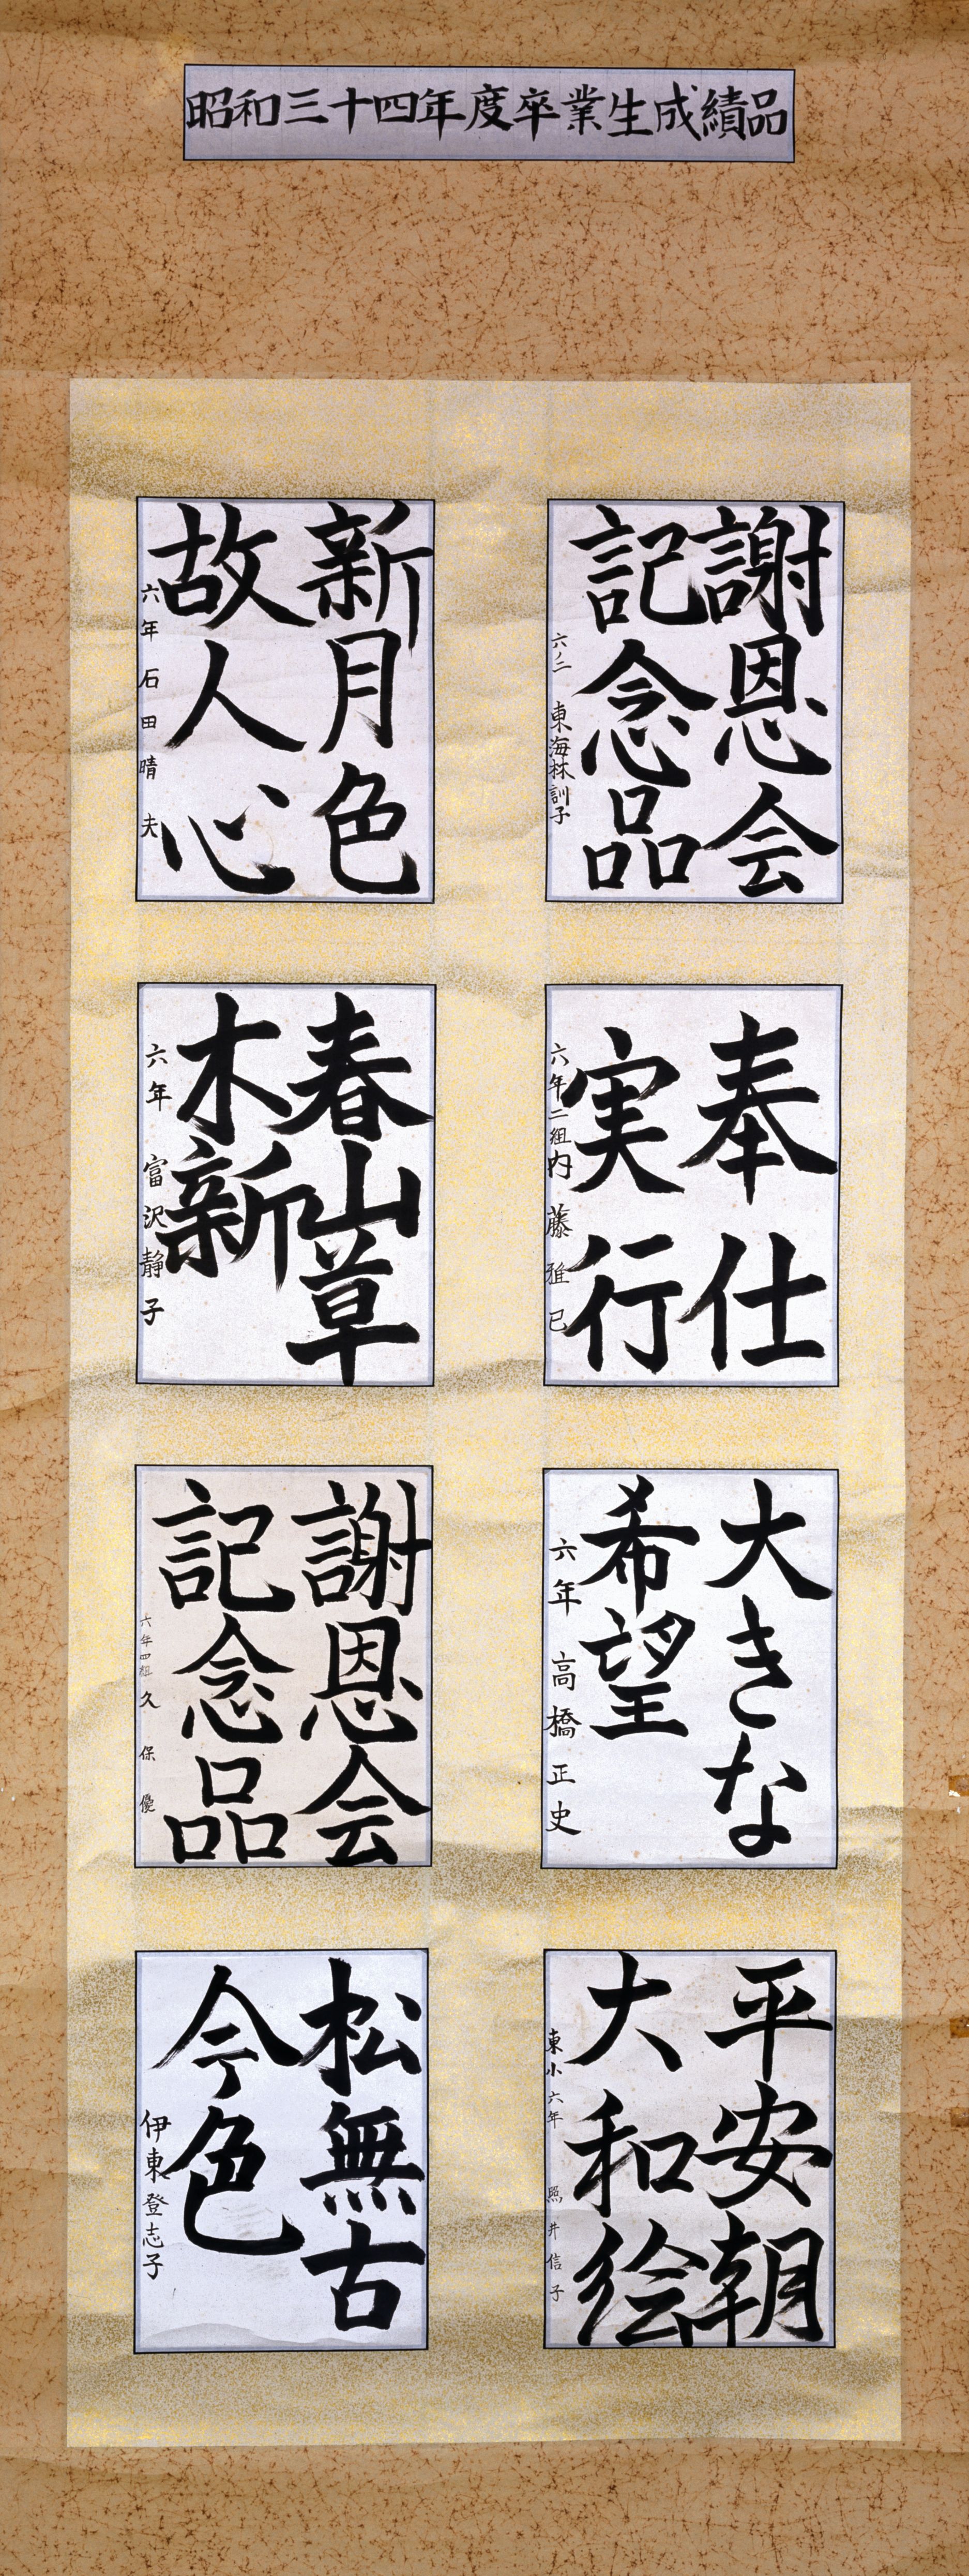 昭和三十四年度卒業生成績品
謝恩会
記念品
六ノ二 東海林訓子
新月色
故人心
六年 石田晴夫
奉仕
実行
六年二組 内藤雅巳
春山草
木新
六年 富沢静子
大きな
希望
六年 高橋正史
謝恩会
記念品
六年四組 久保
平安朝
大和絵
東小六年 照井信子
松無古
今色
伊東登志子